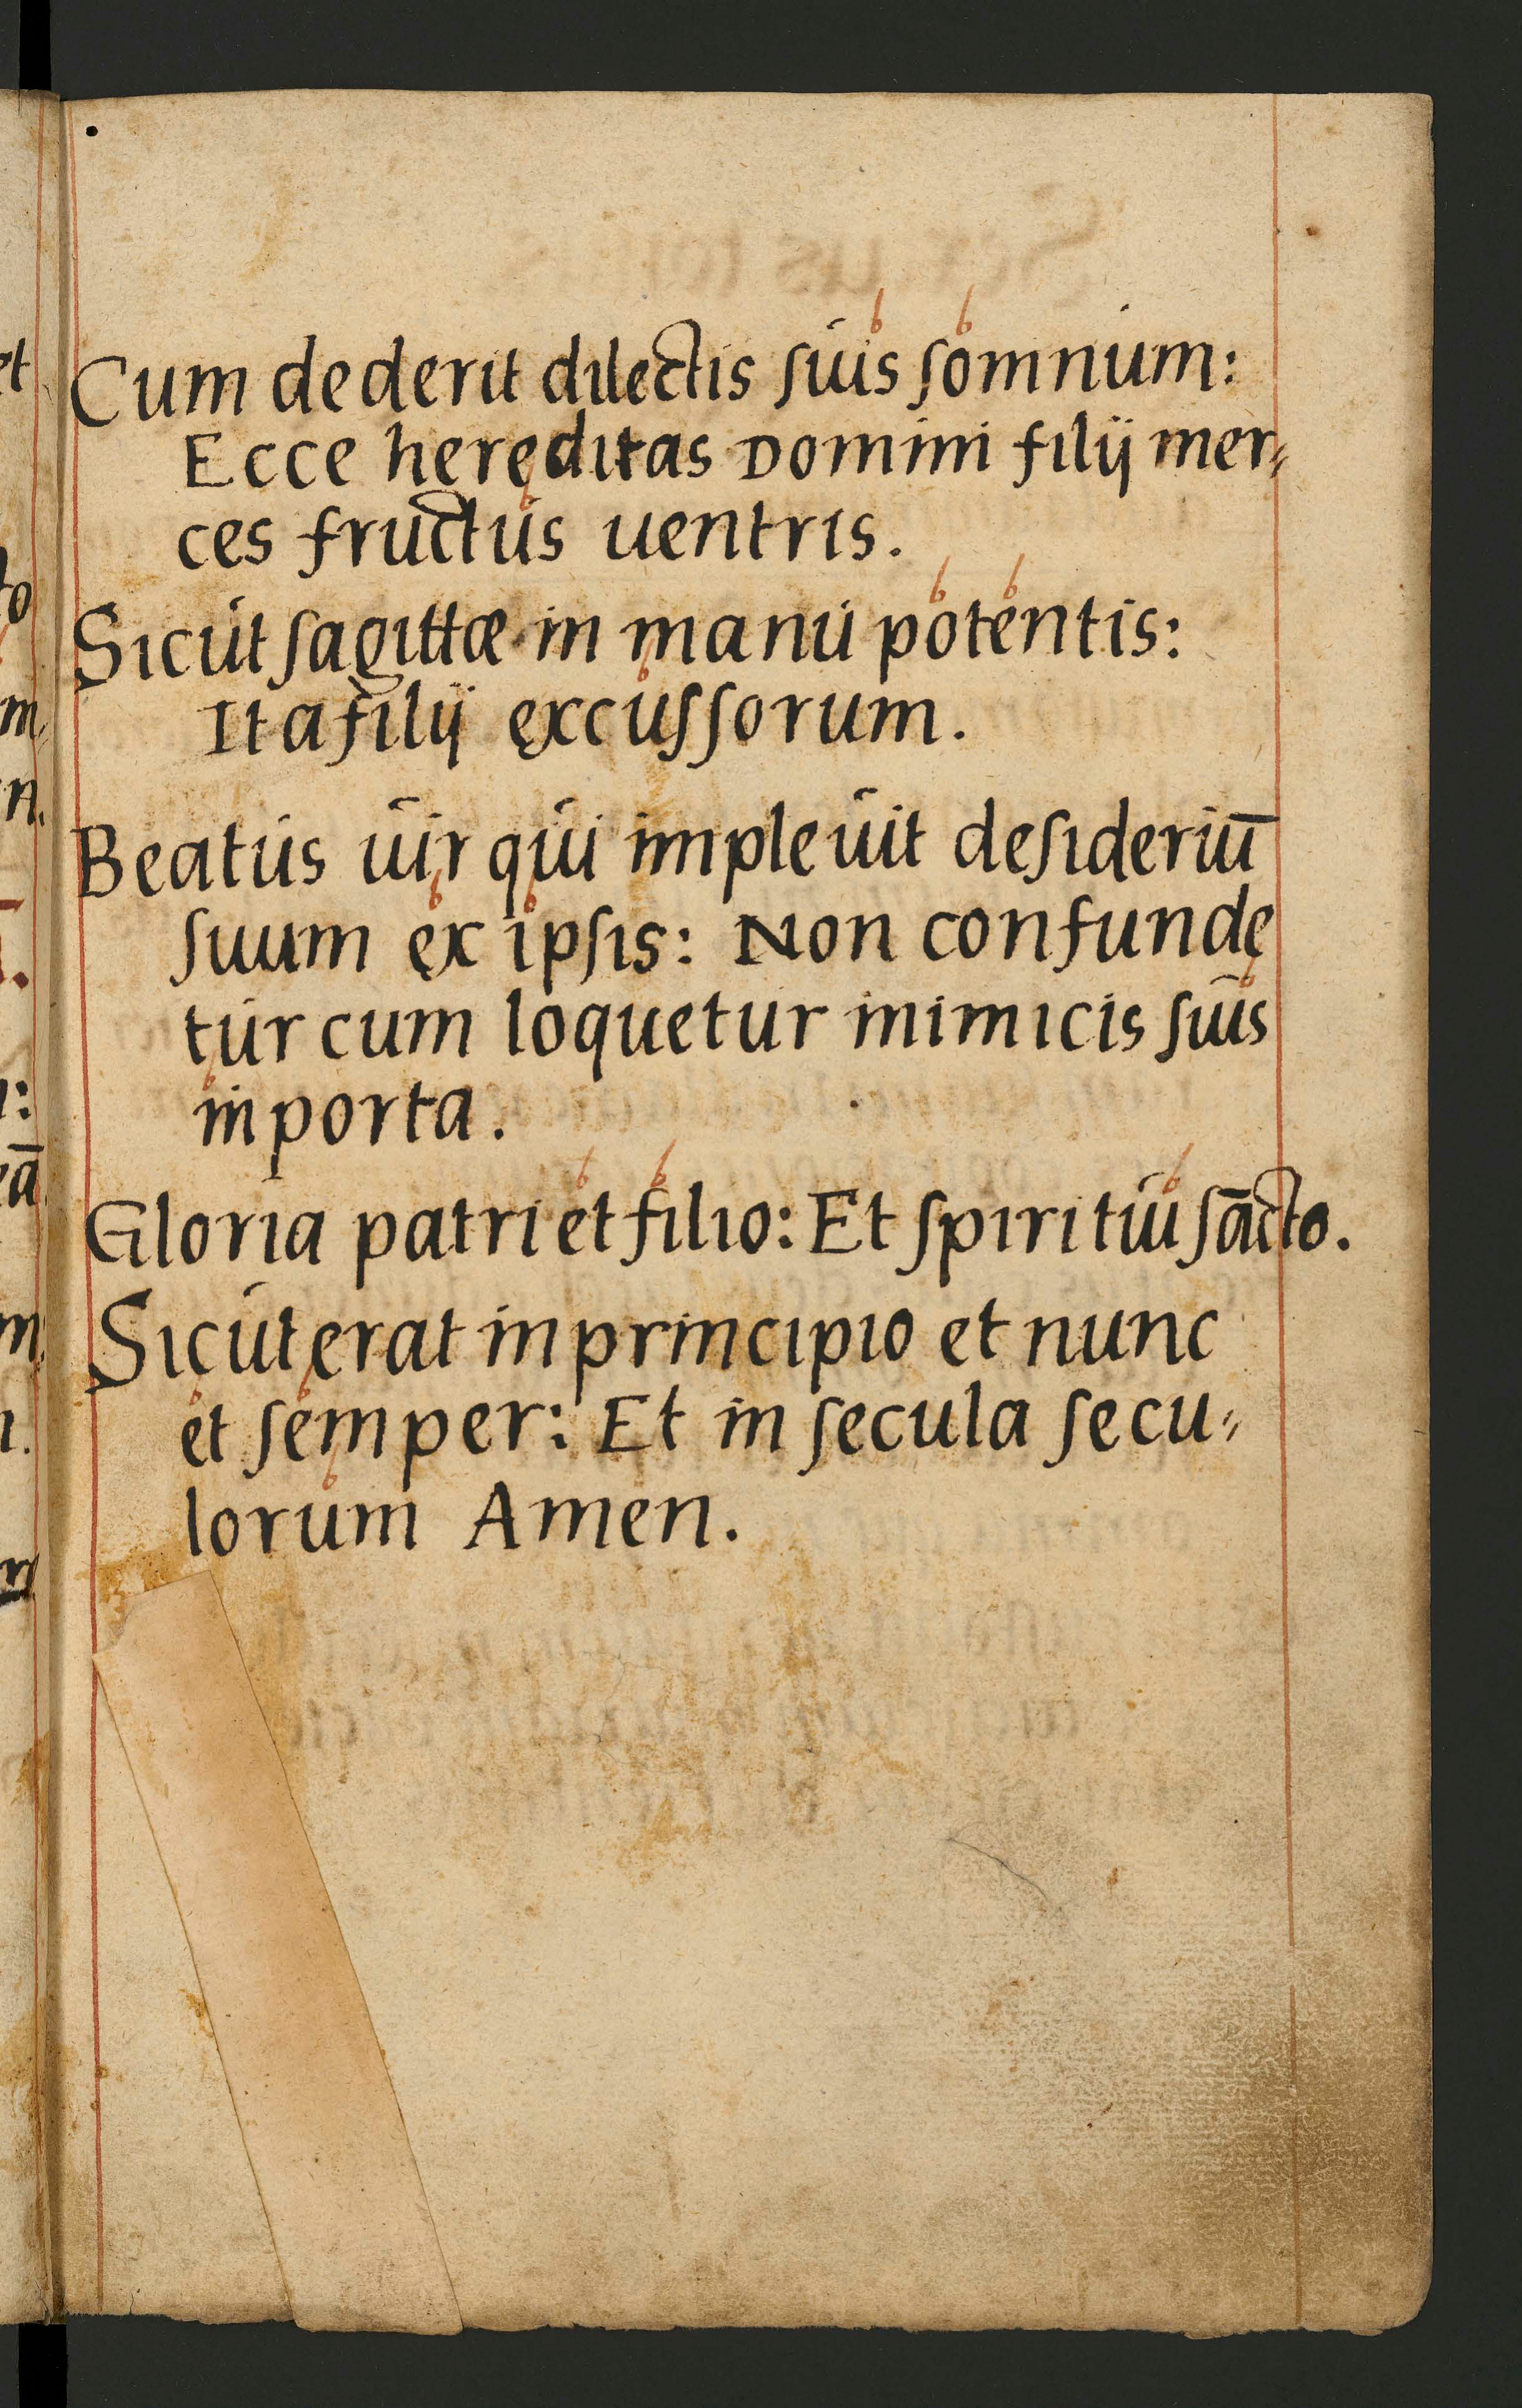 Cum dederit dilectis ſuis ſomnium:
Ecce heręditas Domini filij mer⸗
ces fructus uentris.
Sicut ſagittæ in manu potentis:
Ita filij excuſſorum.
Beatus uir qui impleuit deſideriū
ſuum ex ipſis: Non confunde
tur cum loquetur inimicis ſuis
in porta.
Gloria patri et filio: Et ſpiritui ſācto.
Sicut erat in principio et nunc
et ſemper: Et in ſecula ſecu⸗
lorum Amen.